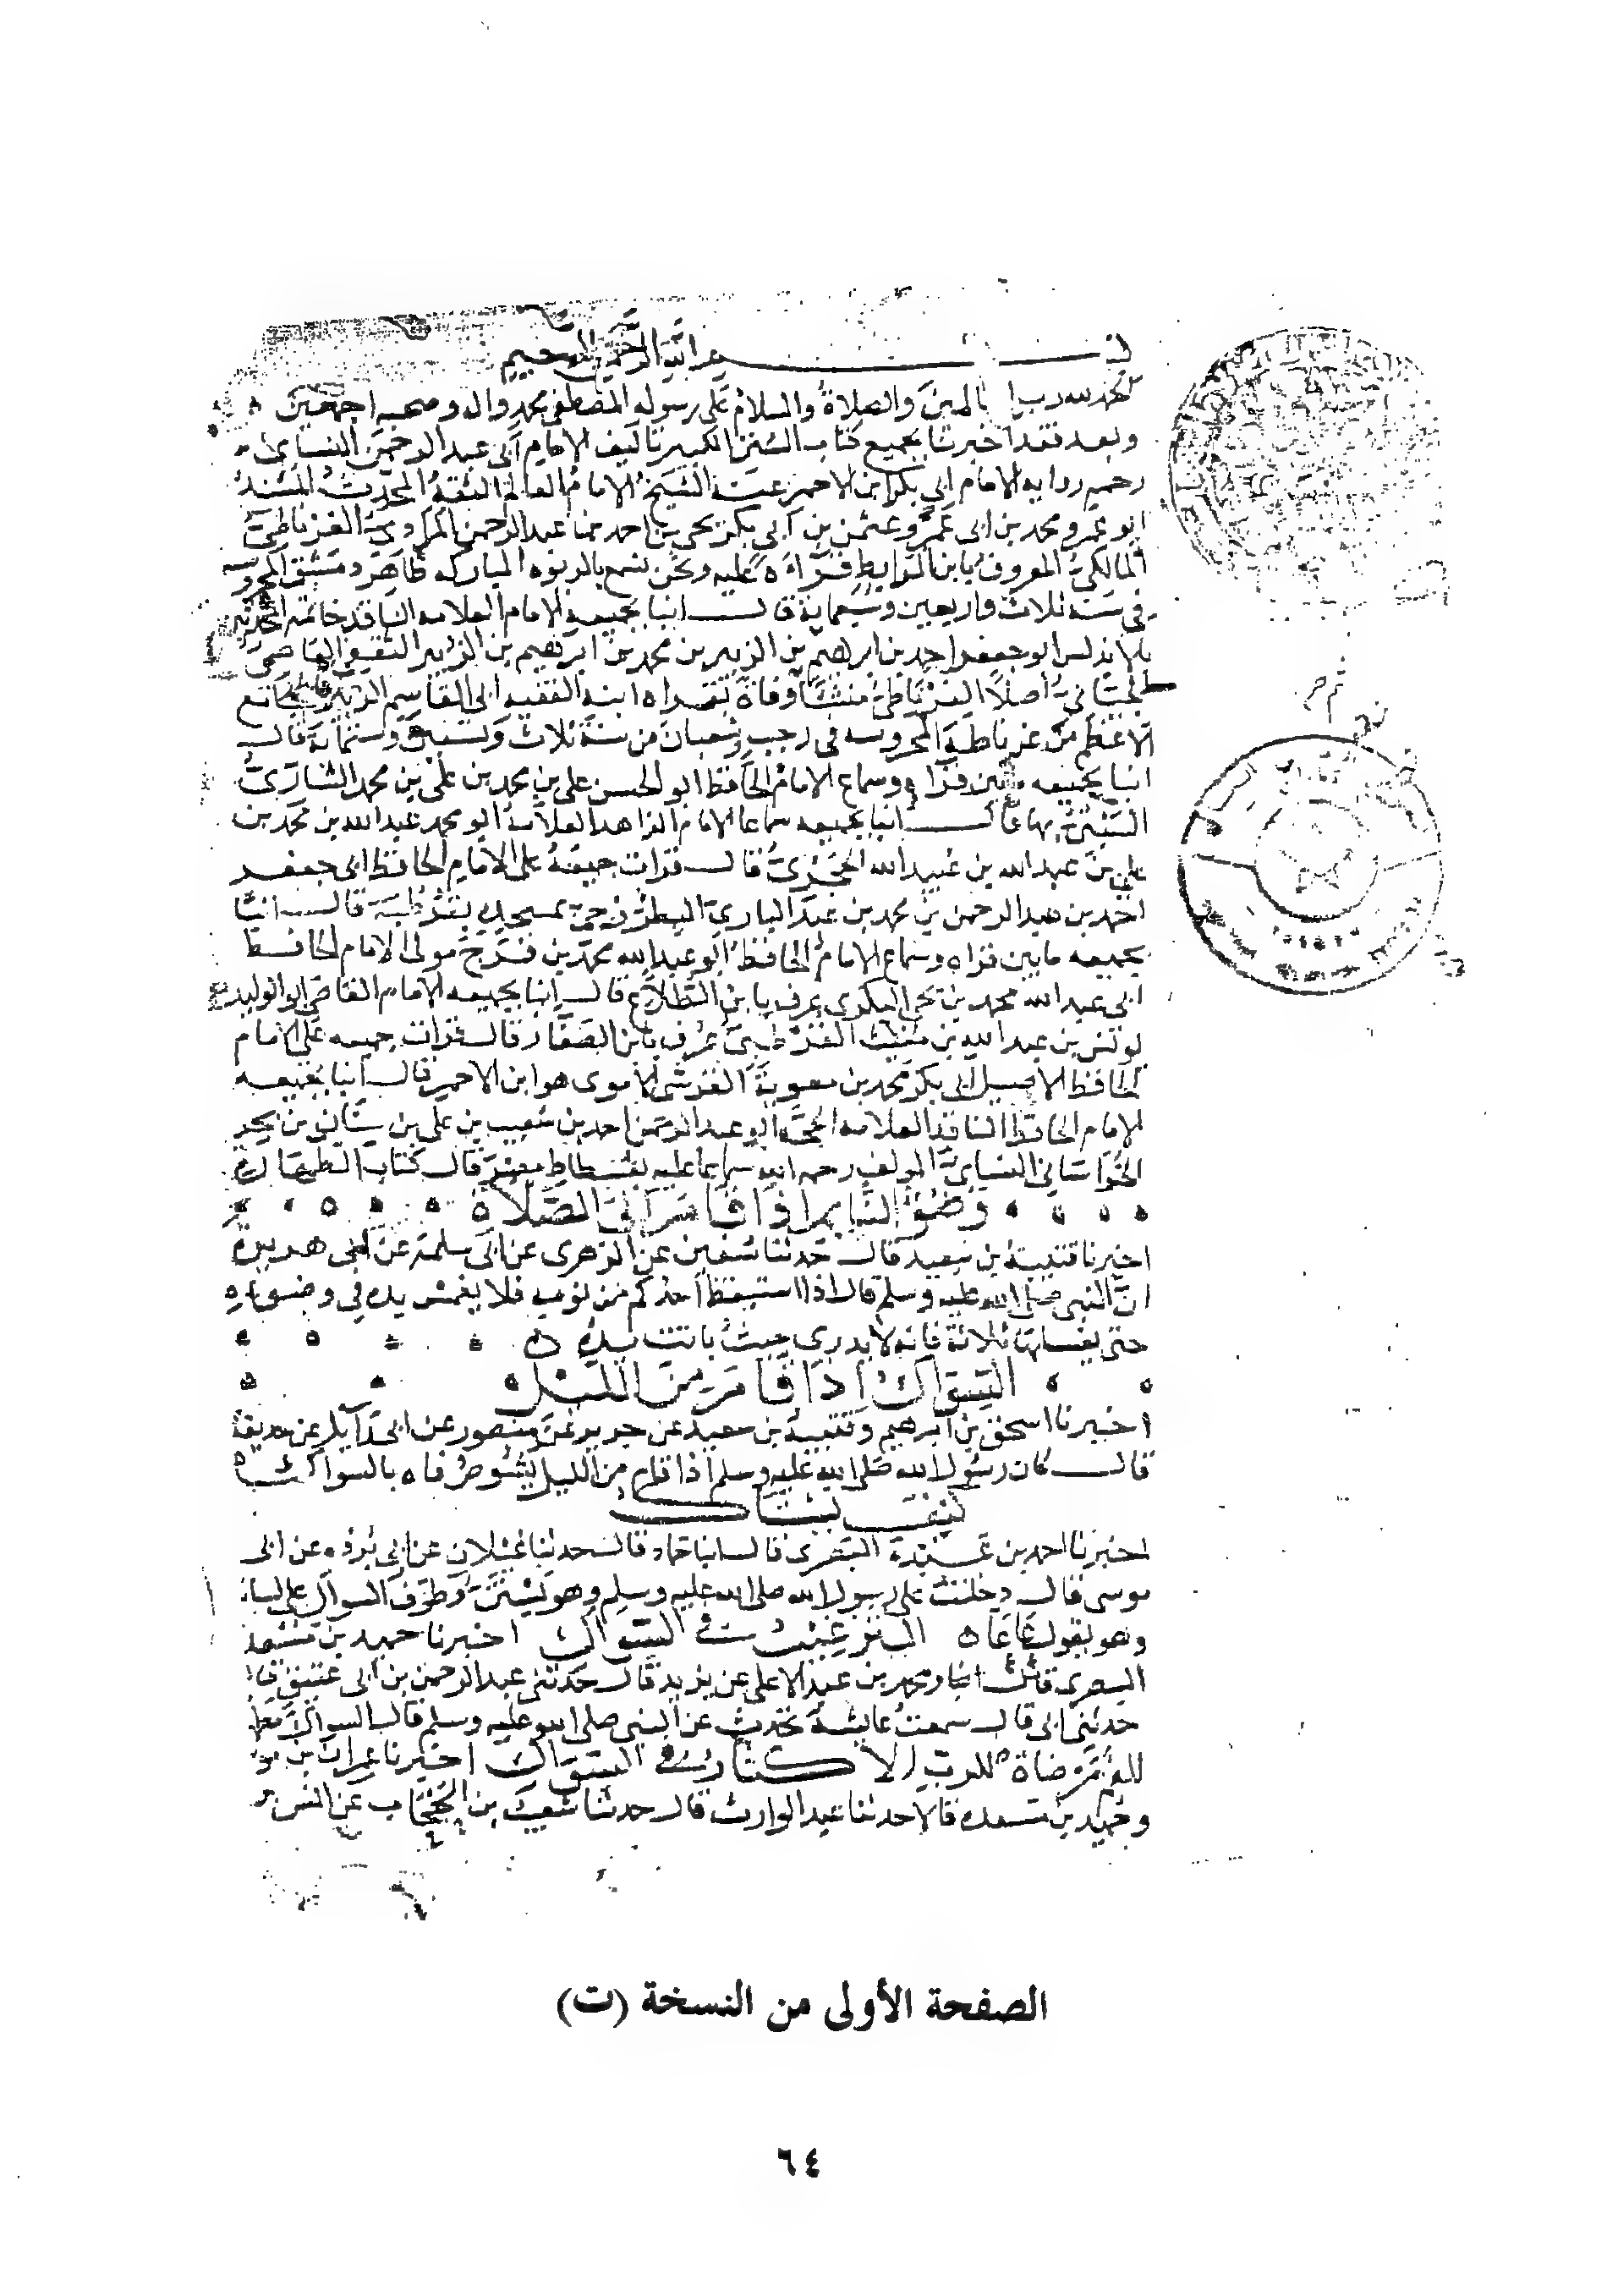 بسم الله الرحمن الرحيم
الحمد لله رب العالمين والصلاة والسلام على رسوله المصطفى محمد واله وصحبه اجمعين
وبعد فقد اخبرنا بجميع كتاب السنن الكبير تاليف الامام ابي عبد الرحمن النساي
رحمه روايه الامام ابي بكر ابن الاحمر عنه الشيخ الامام العالم الثقة المحدث المسند
ابو عمرو محمد بن ابى عمرو عثمن بن ابي بكر يحيى بن احمد بن عبد الرحمن المرادي الغرناطي
المالكي المعروف بابن المرابط قراءة عليه ونحن نسمع بالربوه المباركه ظاهر دمشق المحروسه
في سنة ثلاث واربعين وسبعماية قال انبا بجميعه الامام العلامه الناقد خاتمة المحدثين
بالاندلس ابو جعفر احمد بن ابرهيم بن الزبير بن محمد بن ابرهيم بن الزبير الثقفي العاصمي
الجياني اصلا الغرناطي منشأ ووفاة بقراه ابنه الفقيه ابى القاسم الزبير بجامع
الاعظم من غرناطة المحروسه في رجب وشعبان من سنة ثلاث وتسعين وستماية قال
انبا بجميعه مابين قراه وسماع الامام الحافظ ابو الحسن علي بن محمد بن علي بن محمد الشاري
السبتي بها قال انبا بجميعه سماعا الامام الزاهد العلامة ابو محمد عبد الله بن محمد بن
علي بن عبد الله بن عبيد الله الحجري قال قرات جميعه على الامام الحافظ ابى جعفر
احمد بن عبد الرحمن بن محمد بن عبد الباري البطروجي بمسجده بقرطبة قال انبا
بجميعه مابين قراه وسماع الامام الحافظ ابو عبد الله محمد بن فرج مولى الامام الحافظ
ابي عبد الله محمد بن يحيى البكرى عرف بابن الطلاع قال انبا بجميعه الامام القاضي ابو الوليد
يونس بن عبد الله بن مغيث القرطبي عرف بابن الصفار قال قرات جميعه على الامام
الحافظ الاصيل ابى بكر محمد بن معوية القرشى الاموى هو ابن الاحمر قال انبا بجميعه
الامام الحافظ الناقد العلامه الحجة ابو عبد الرحمن احمد بن شعيب بن علي بن سنان بن بحر
الخراساني النساي المولف رحمه الله سماعا عليه بفسطاط مصر قال كتاب الطهارة
وضوء النايم اذا قام الى الصلاة
اخبرنا قتيبة بن سعيد قال حدثنا سفين عن الزهرى عن ابى سلمة عن ابى هريرة
ان النبى صلى الله عليه وسلم قال اذا استيقظ احدكم من نومه فلا يغمس يده في وضوءه
حتى يغسلها ثلاثة فانه لا يدرى حيث باتت يده
السواك اذا قام من الليل
اخبرنا اسحق بن ابرهيم وقتيبة بن سعيد عن جرير عن منصور عن ابى وايل عن حذيفة
قال كان رسول الله صلى الله عليه وسلم اذا قام من الليل يشوص فاه بالسواك
كيف يستاك
اخبرنا احمد بن عبدة البصرى قال انبا حماد قال حدثنا غيلان عن ابي بردة عن ابى
موسى قال دخلت على رسول الله صلى الله عليه وسلم وهو يستن وطرف السواك على لسانه
وهو يقول عا عا الترغيب في السواك اخبرنا حميد بن مسعدة
البصرى ومحمد بن عبد الاعلى عن يزيد قال حدثنى عبد الرحمن بن ابى عتيق قال
حدثنى ابى قال سمعت عايشة تحدث عن النبى صلى الله عليه وسلم قال السواك مطهرة
للفم مرضاة للرب الاكثار في السواك اخبرنا عمران بن موسى
وحميد بن مسعدة قالا حدثنا عبد الوارث قال حدثنا شعيب بن الحبحاب عن انس بن
الصفحة الأولى من النسخة (ت)
٦٤